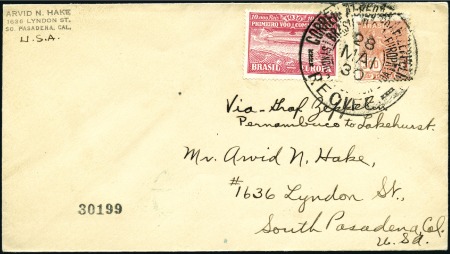 ARVID N. HAKE
1636 LYNDON ST.
SO. PASADENA, CAL.
U.S.A.
PRIMEIRO VOO COMMERCIAL
BRASIL - EUROPA
CORREIO AEREO
BRASIL
28
MAI
30
RECIFE
Via-Graf Zeppelin
Pernambuco to Lakehurst.
Mr. Arvid N. Hake,
#1636 Lyndon St.,
South Pasadena, Cal.
U.S.A.
30199